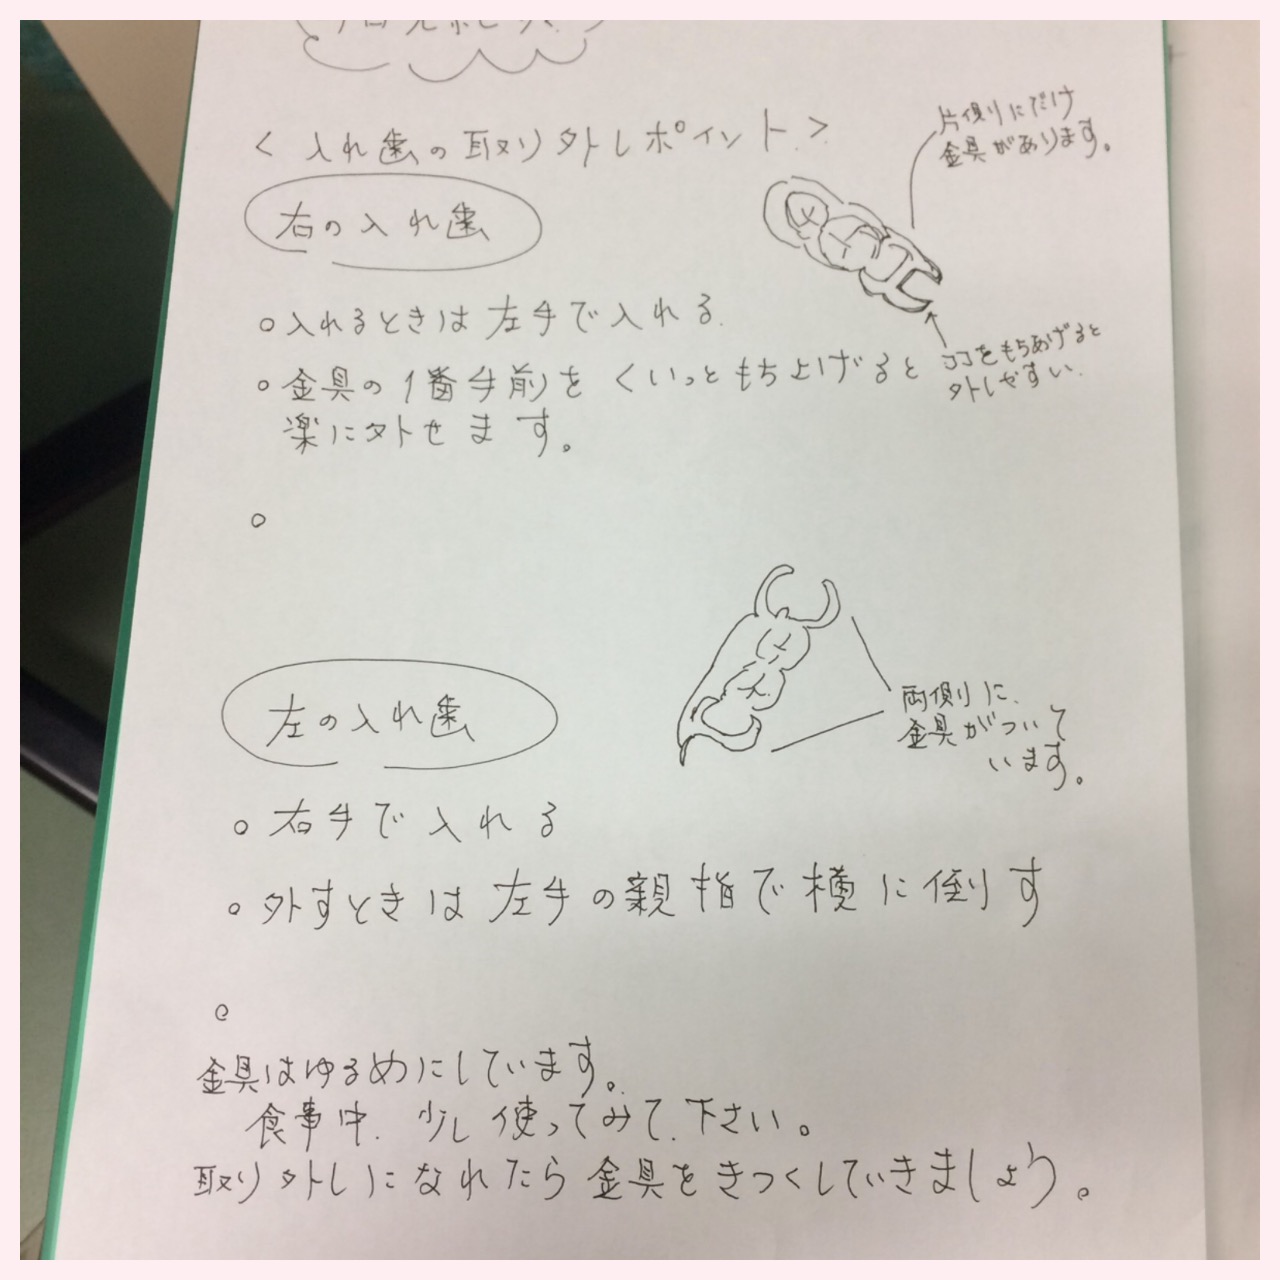 <入れ歯の取り外しポイント>
片側にだけ
金具があります。
右の入れ歯
○入れるときは左手で入れる.
○金具の1番手前をくいっともち上げると
楽に外せます。
ココをもちあげると
外しやすい.
○
両側に.
金具がついて
います。
左の入れ歯
○右手で入れる
○外すときは左手の親指で横に倒す
○
金具はゆるめにしています。
食事中.少し使ってみて.下さい。
取り外しになれたら金具をきつくしていきましょう。